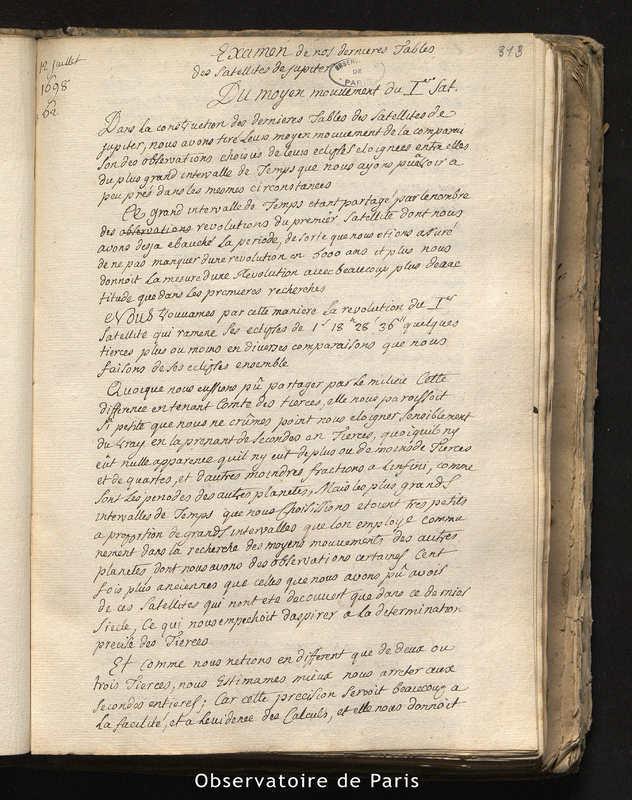 12 Juillet
1698
62
Examen de nos dernieres Tables
313
des Satellites de jupiter
OBSERV
DE
PARIS
Du moyen mouvement du Ier Sat.
Dans la construction des dernieres Tables des Satellites de
jupiter, nous avons tiré leurs moyen mouvement de la comparai
son des observations choisies de leurs eclipses eloignees entre elles
du plus grand intervalle de Temps que nous ayons pû avoir a
peu prés dans les mesmes circonstances
Ce grand intervalle de Temps etant partagé par le nombre
des observations revolutions du premier Satellite dont nous
avons desja ebauché la periode, de sorte que nous etions assuré
de ne pas manquer dune revolution en 6000 ans et plus nous
donnoit la mesure dune Revolution avec beaucoup plus dexac
titude que dans les premieres recherches
Nous trouvames par cette maniere la revolution du Ier
Satellite qui ramene ses eclipses de 1j 18h 28' 36" quelques
tierces plus ou moins en diverses comparaisons que nous
faisons de ses eclipses ensemble
Quoique nous eussions pû partager par le milieu Cette
difference en tenant Comte des tierces, elle nous paroissoit
si petite que nous ne crûmes point nous eloigner sensiblement
du vray en la prenant de secondes en Tierces, quoiquil ny
eût nulle apparence quil ny eut de plus ou de moins de Tierces
et de quartes, et dautres moindres fractions a linfini, comme
sont les periodes des autres planetes, Mais les plus grands
intervalles de Temps que nous Choisissions etoient tres petits
a proportion de grands intervalles que lon employe commu
nement dans la recherche des moyens mouvements des autres
planetes dont nous avons des observations certaines Cent
fois plus anciennes que celles que nous avons pû avoir
de ces Satellites qui nont eté decouvert que dans ce dernier
Siecle, Ce qui nous empechoit daspirer a la determination
precise des Tierces
Et comme nous netions en different que de deux ou
trois Tierces, nous Estimames mieux nous arreter aux
secondes entieres; Car cette precision servoit beaucoup a
la facilité, et a levidence des Calculs, et elle nous donnoit
Observatoire de Paris